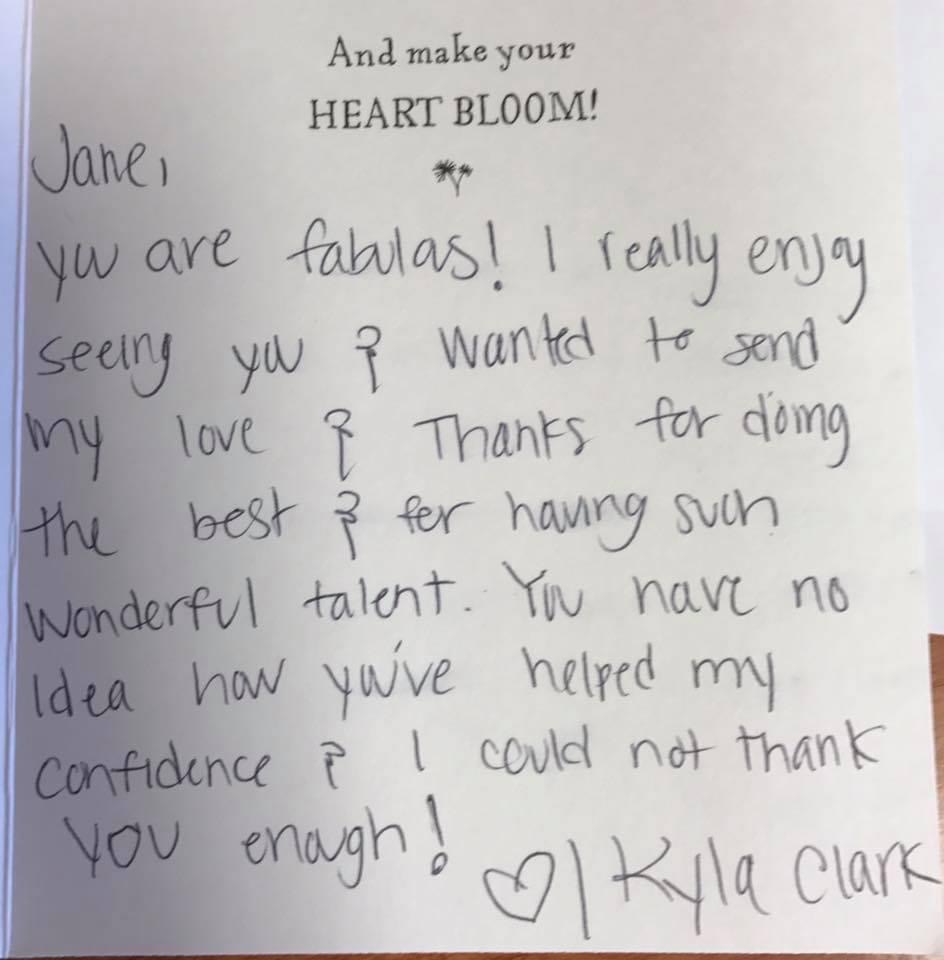 And make your
HEART BLOOM!
Jane,
you are fabulas! I really enjoy
seeing you & wanted to send
my love & Thanks for doing
the best & for having such
wonderful talent. You have no
Idea how you've helped my
confidence & I could not thank
you enough!
♡, Kyla Clark